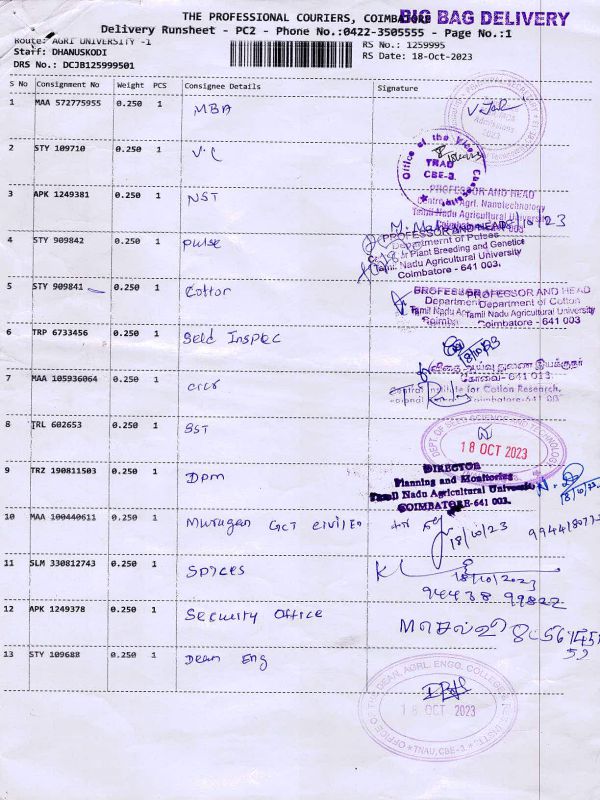 THE PROFESSIONAL COURIERS, COIMBATORE
BIG BAG DELIVERY
Delivery Runsheet - PC2 - Phone No.:0422-3505555 - Page No.:1
Route: AGRI UNIVERSITY -1
Staff: DHANUSKODI
DRS No.: DCJB125999501
RS No.: 1259995
RS Date: 18-Oct-2023
S No Consignment No Weight PCS Consignee Details Signature
1 MAA 572775955 0.250 1 MBA
2023
2 STY 109710 0.250 1 V.C
Office of the Vice
TNAU
CBE-3.
3 APK 1249381 0.250 1 NST
PROFESSOR AND HEAD
Agrl. Nanotechnology
Tamil Nadu Agricultural University
4 STY 909842 0.250 1 Pulse
PROFESSOR AND HEAD
Department of Pulses
Plant Breeding and Genetics
Tamil Nadu Agricultural University
Coimbatore - 641 003.
5 STY 909841 0.250 1 Cotton
PROFESSOR AND HEAD
Department of Cotton
Tamil Nadu Agricultural University
Coimbatore - 641 003
6 TRP 6733456 0.250 1 Seed Inspec
18/10/23
விதை ஆய்வு துணை இயக்குநர்
கோவை- 641 013
7 MAA 105936064 0.250 1 CICR
Central Institute for Cotton Research,
8 IRL 602653 0.250 1 SST
DEPT. OF SEED SCIENCE AND TECHNOLOGY
18 OCT 2023
9 TRZ 190811503 0.250 1 DPM
DIRECTOR
Planning and Monitoring
Tamil Nadu Agricultural University
COIMBATORE-641 003.
18/10/23
10 MAA 100440611 0.250 1 Murugan GCT Civil
18/10/23
11 SLM 330812743 0.250 1 Spices
18/10/2023
94438 99822
12 APK 1249378 0.250 1 Security Office
13 STY 109688 0.250 1 Dean Eng
OFFICE OF THE DEAN, AGRL. ENGG. COLLEGE
18 OCT 2023
TNAU, CBE-3.